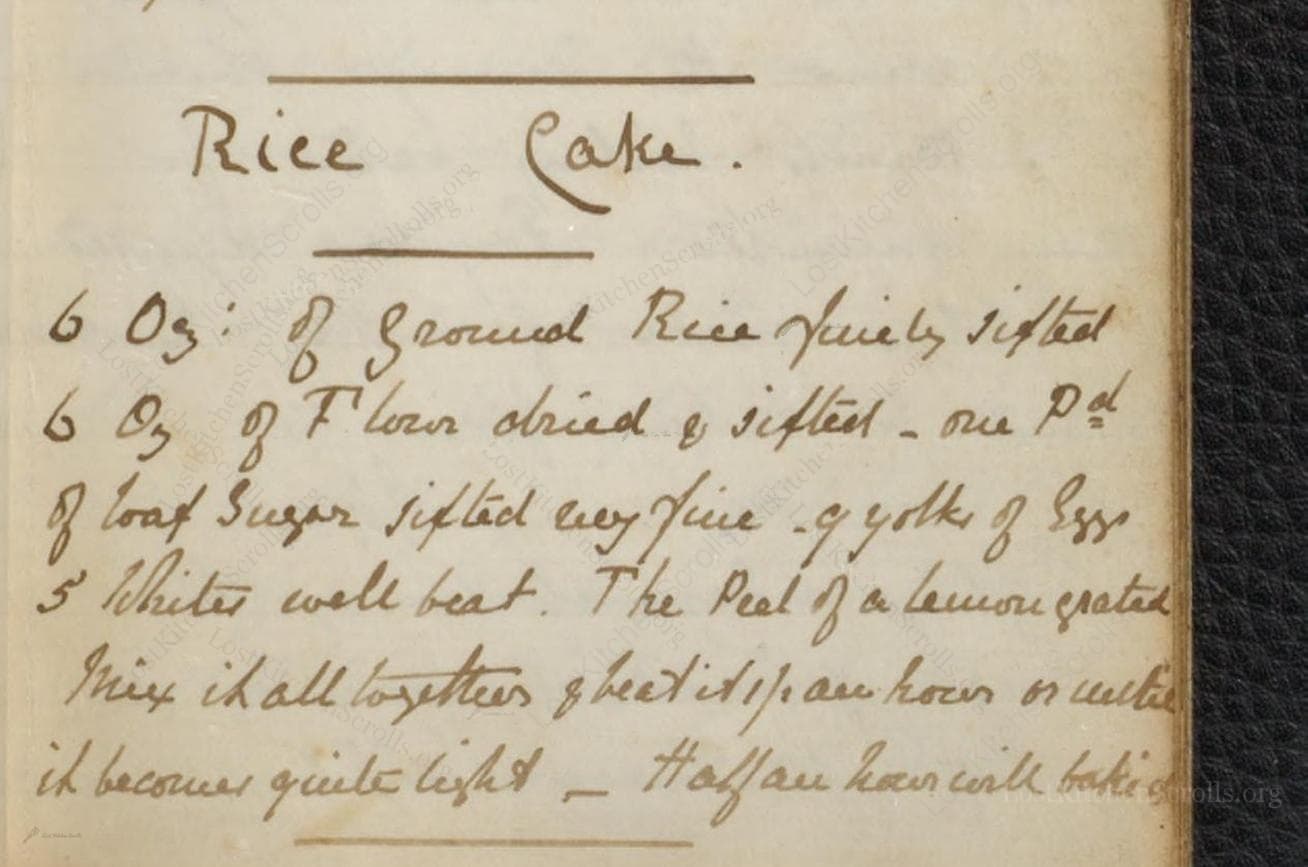 Rice Cake.
6 Oz: of ground Rice finely sifted
6 Oz of Flour dried & sifted - one Pd
of loaf Sugar sifted very fine - 9 yolks of Eggs
5 Whites well beat. The Peel of a lemon grated
Mix it all together & beat it 1/2 an hour or untill
it becomes quite light — Half an hour will bake it
LostKitchenScrolls.org